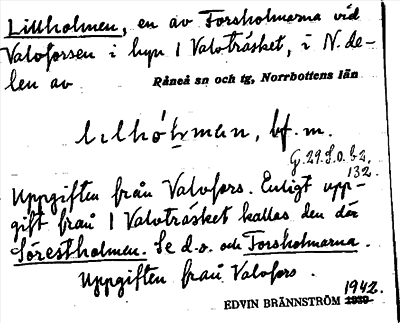 Lillholmen, en av Forsholmarna vid
Valvforssen i hyn 1 Valvträsket, i N. de-
len av
Råneå sn och tg, Norrbottens län
lilhólman, bf. m.
G. 29. S. o. b2,
132.
Uppgiften från Valvfors. Enligt upp-
gift från 1 Valvträsket kallas den där
Sörestholmen. Se d.o. och Forsholmarna.
Uppgiften från Valvfors.
1942.
EDVIN BRÄNNSTRÖM 1939